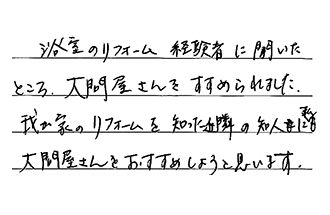 浴室のリフォーム 経験者に聞いた
ところ、大問屋さんをすすめられました。
我が家のリフォームを知った近隣の知人に
大問屋さんをおすすめしようと思います。